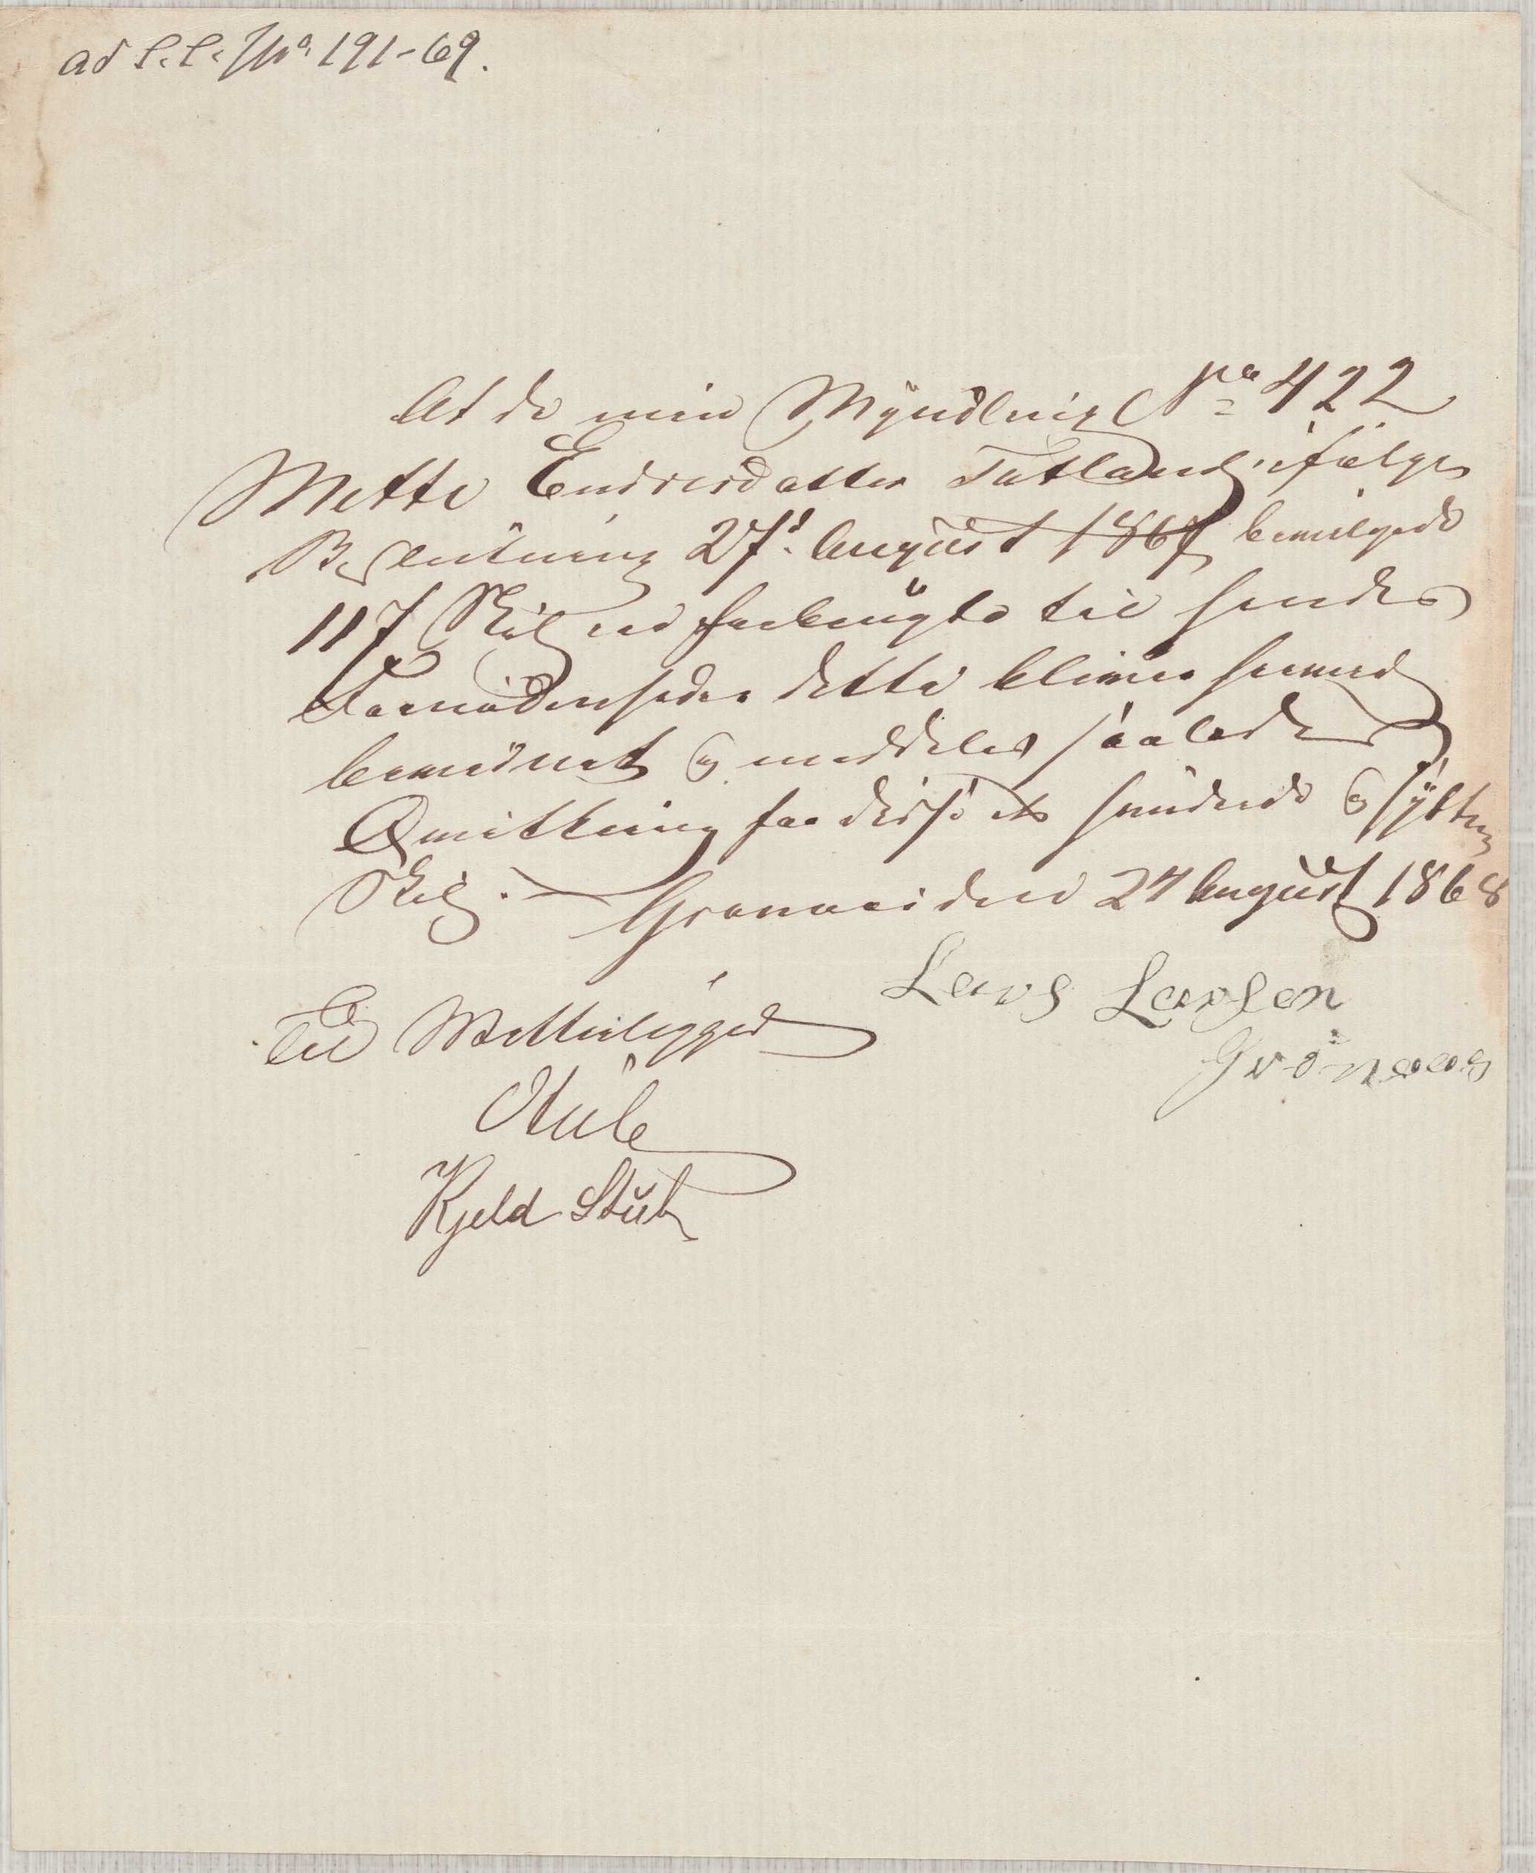 ad No 191-69.
At de min Myndling No 422
Mette Endresdatter Tutland ifølge
Beslutning 27d August 1867 bevilgede
117 Skil er forbrugte til hendes
Fornødenheder dette blive herved
bevidnet og meddeles saaledes
Qvittering for disse et hundrede og sytten
Skil. Grønaas den 27 August 1868
Lars Larsen
Grönaas
Til Vitterlighed
Stub
Kjeld Stub